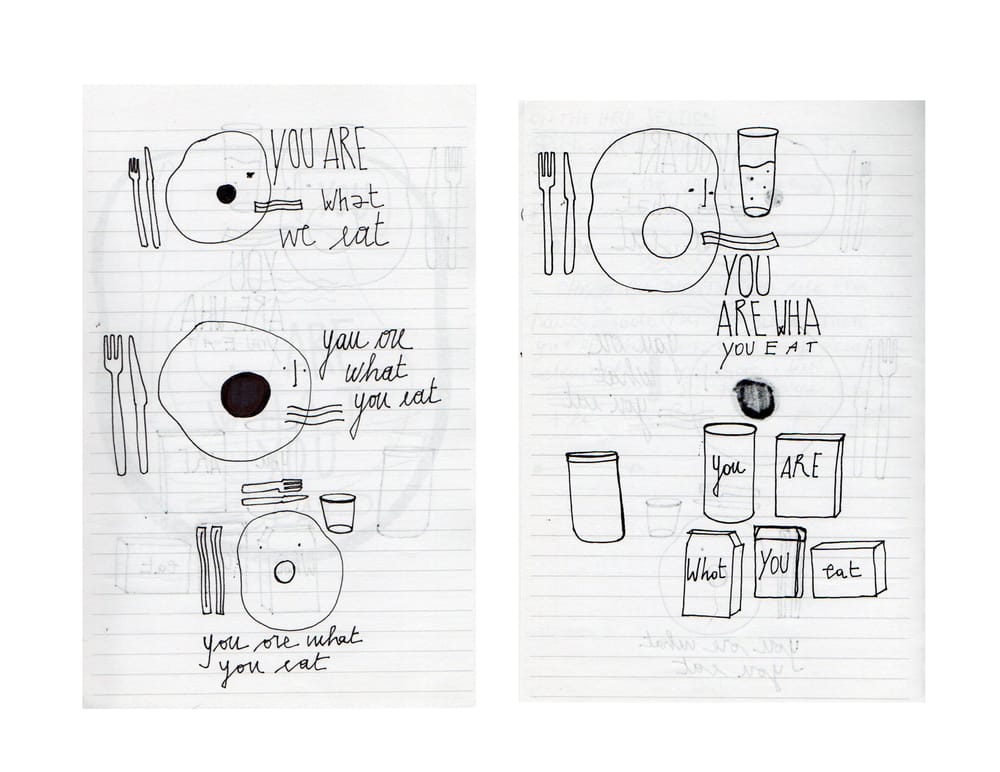 YOU ARE
what
we eat
you are
what
you eat
you are what
you eat
YOU
ARE WHA
YOU EAT
you
ARE
What
YOU
eat